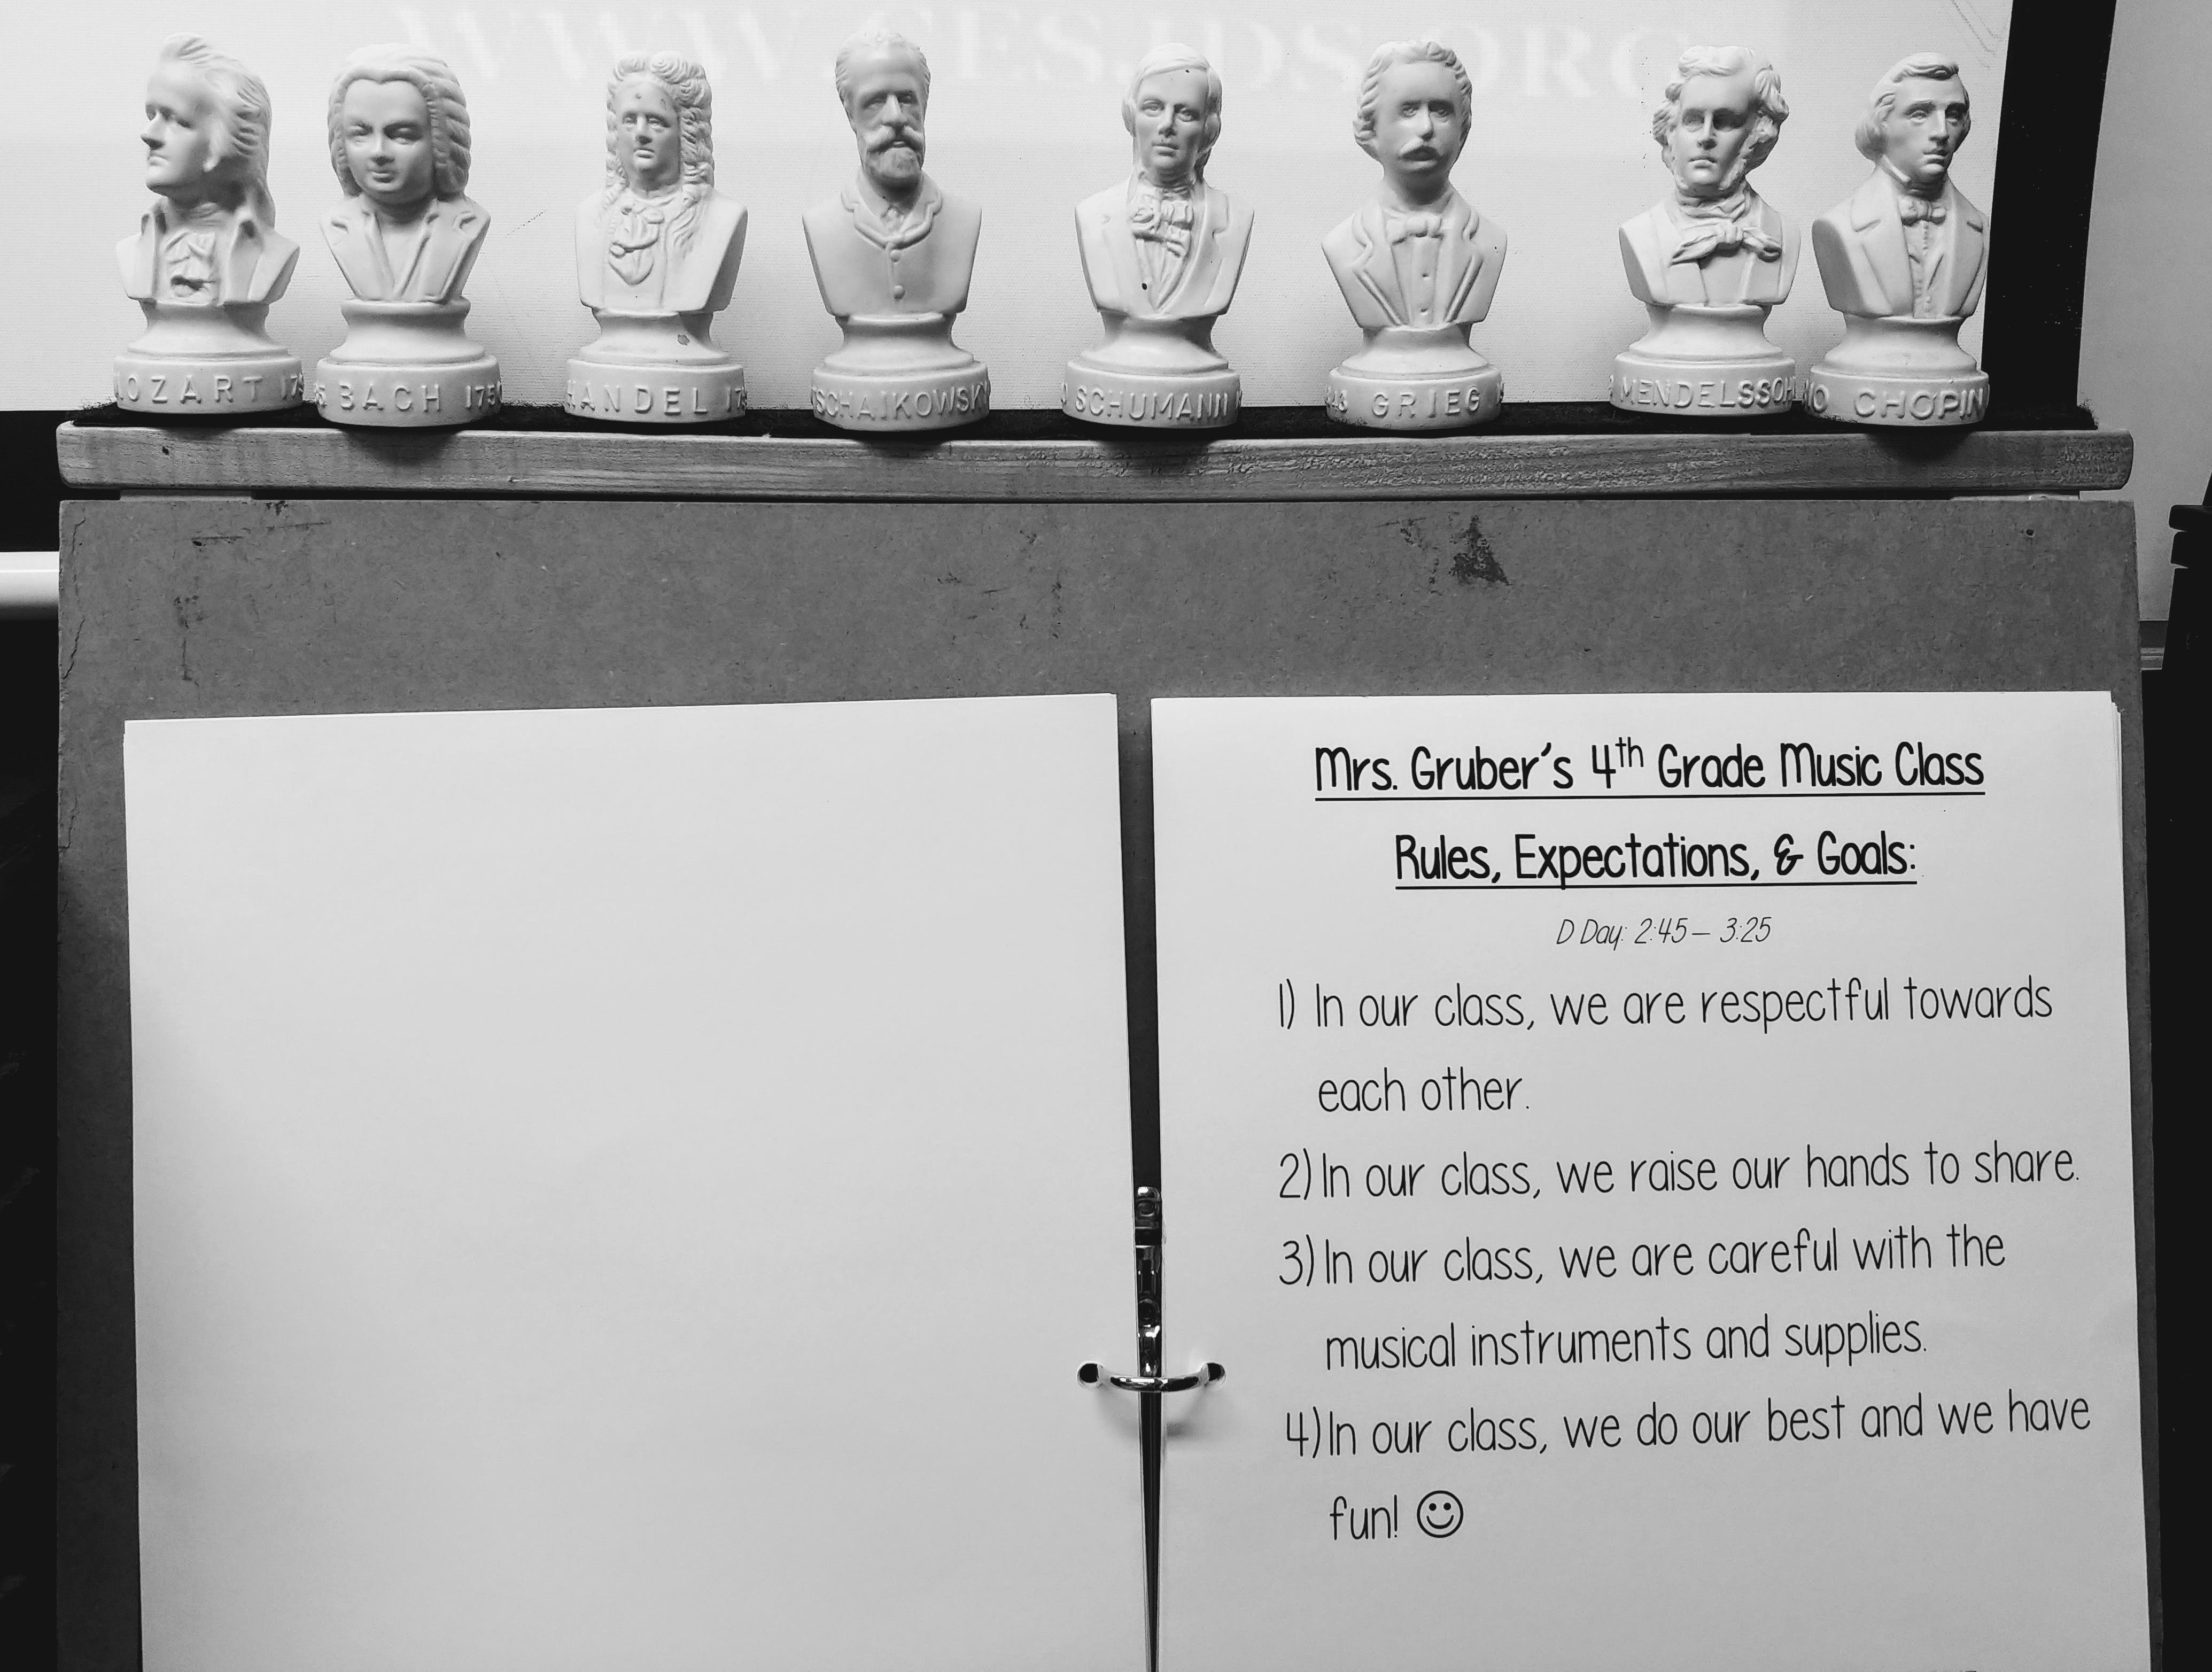 MOZART 17
BACH 175
HANDEL 17
SCHAIKOWSKY
SCHUMANN
GRIEG
MENDELSSOH
10 CHOPIN
Mrs. Gruber's 4th Grade Music Class
Rules, Expectations, & Goals:
D Day: 2:45 – 3:25
1) In our class, we are respectful towards
each other.
2) In our class, we raise our hands to share.
3) In our class, we are careful with the
musical instruments and supplies.
4) In our class, we do our best and we have
fun! ☺